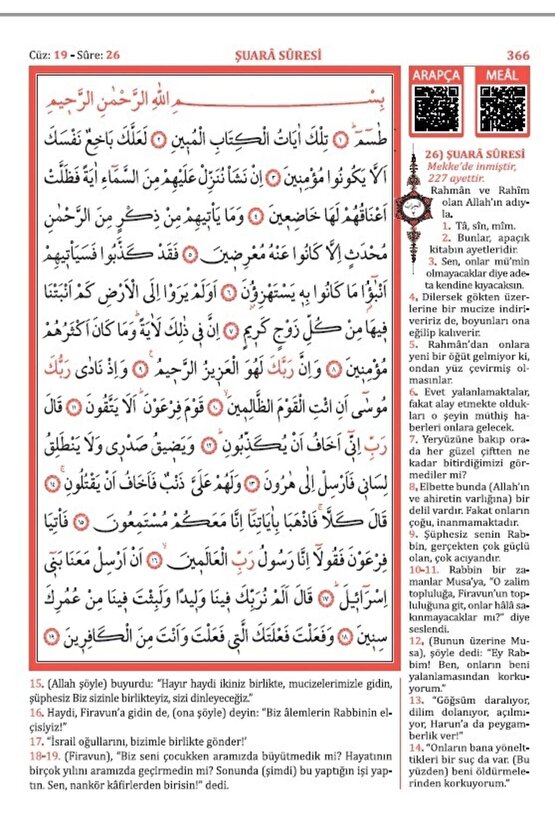 Cüz: 19 - Sûre: 26
ŞUARÂ SÛRESİ
366
بِسْمِ اللّٰهِ الرَّحْمٰنِ الرَّح۪يمِ
طٰسٓمٓ ﴿١﴾ تِلْكَ اٰيَاتُ الْكِتَابِ الْمُب۪ينِ ﴿٢﴾ لَعَلَّكَ بَاخِعٌ نَفْسَكَ
اَلَّا يَكُونُوا مُؤْمِن۪ينَ ﴿٣﴾ اِنْ نَشَأْ نُنَزِّلْ عَلَيْهِمْ مِنَ السَّمَٓاءِ اٰيَةً فَظَلَّتْ
اَعْنَاقُهُمْ لَهَا خَاضِع۪ينَ ﴿٤﴾ وَمَا يَأْت۪يهِمْ مِنْ ذِكْرٍ مِنَ الرَّحْمٰنِ
مُحْدَثٍ اِلَّا كَانُوا عَنْهُ مُعْرِض۪ينَ ﴿٥﴾ فَقَدْ كَذَّبُوا فَسَيَأْت۪يهِمْ
اَنْبٰٓؤُا مَا كَانُوا بِه۪ يَسْتَهْزِؤُ۫نَ ﴿٦﴾ اَوَلَمْ يَرَوْا اِلَى الْاَرْضِ كَمْ اَنْبَتْنَا
ف۪يهَا مِنْ كُلِّ زَوْجٍ كَر۪يمٍ ﴿٧﴾ اِنَّ ف۪ي ذٰلِكَ لَاٰيَةًۜ وَمَا كَانَ اَكْثَرُهُمْ
مُؤْمِن۪ينَ ﴿٨﴾ وَاِنَّ رَبَّكَ لَهُوَ الْعَز۪يزُ الرَّح۪يمُ۟ ﴿٩﴾ وَاِذْ نَادٰى رَبُّكَ
مُوسٰٓى اَنِ ائْتِ الْقَوْمَ الظَّالِم۪ينَۙ ﴿١٠﴾ قَوْمَ فِرْعَوْنَۜ اَلَا يَتَّقُونَ ﴿١١﴾ قَالَ
رَبِّ اِنّ۪ٓي اَخَافُ اَنْ يُكَذِّبُونِۜ ﴿١٢﴾ وَيَض۪يقُ صَدْر۪ي وَلَا يَنْطَلِقُ
لِسَان۪ي فَاَرْسِلْ اِلٰى هٰرُونَ ﴿١٣﴾ وَلَهُمْ عَلَيَّ ذَنْبٌ فَاَخَافُ اَنْ يَقْتُلُونِۚ ﴿١٤﴾
قَالَ كَلَّاۚ فَاذْهَبَا بِاٰيَاتِنَٓا اِنَّا مَعَكُمْ مُسْتَمِعُونَ ﴿١٥﴾ فَأْتِيَا
فِرْعَوْنَ فَقُولَٓا اِنَّا رَسُولُ رَبِّ الْعَالَم۪ينَۙ ﴿١٦﴾ اَنْ اَرْسِلْ مَعَنَا بَن۪ٓي
اِسْرَٓائ۪لَۜ ﴿١٧﴾ قَالَ اَلَمْ نُرَبِّكَ ف۪ينَا وَل۪يدًا وَلَبِثْتَ ف۪ينَا مِنْ عُمُرِكَ
سِن۪ينَۙ ﴿١٨﴾ وَفَعَلْتَ فَعْلَتَكَ الَّت۪ي فَعَلْتَ وَاَنْتَ مِنَ الْكَافِر۪ينَ ﴿١٩﴾
ARAPÇA
MEÂL
26) ŞUARÂ SÛRESİ
Mekke’de inmiştir,
227 ayettir.
Rahmân ve Rahîm
olan Allah’ın adıy-
la.
1. Tâ, sîn, mîm.
2. Bunlar, apaçık
kitabın ayetleridir.
3. Sen, onlar mü’min
olmayacaklar diye ade-
ta kendine kıyacaksın.
4. Dilersek gökten üzer-
lerine bir mucize indiri-
veririz de, boyunları ona
eğilip kalıverir.
5. Rahmân’dan onlara
yeni bir öğüt gelmiyor ki,
ondan yüz çevirmiş ol-
masınlar.
6. Evet yalanlamaktalar,
fakat alay etmekte olduk-
ları o şeyin müthiş ha-
berleri onlara gelecek.
7. Yeryüzüne bakıp ora-
da her güzel çiftten ne
kadar bitirdiğimizi gör-
mediler mi?
8. Elbette bunda (Allah’ın
ve ahiretin varlığına) bir
delil vardır. Fakat onların
çoğu, inanmamaktadır.
9. Şüphesiz senin Rab-
bin, gerçekten çok güçlü
olan, çok acıyandır.
10-11. Rabbin bir za-
manlar Musa’ya, “O zalim
topluluğa, Firavun’un top-
luluğuna git, onlar hâlâ sa-
kınmayacaklar mı?” diye
seslendi.
12. (Bunun üzerine Mu-
sa), şöyle dedi: “Ey Rab-
bim! Ben, onların beni
yalanlamasından korku-
yorum.”
13. “Göğsüm daralıyor,
dilim dolanıyor, açılmı-
yor, Harun’a da peygam-
berlik ver!”
14. “Onların bana yönelt-
tikleri bir suç da var. (Bu
yüzden) beni öldürmele-
rinden korkuyorum.”
15. (Allah şöyle) buyurdu: “Hayır haydi ikiniz birlikte, mucizelerimizle gidin,
şüphesiz Biz sizinle birlikteyiz, sizi dinleyeceğiz.”
16. Haydi, Firavun’a gidin de, (ona şöyle) deyin: “Biz âlemlerin Rabbinin el-
çisiyiz!”
17. “İsrail oğullarını, bizimle birlikte gönder!’
18-19. (Firavun), “Biz seni çocukken aramızda büyütmedik mi? Hayatının
birçok yılını aramızda geçirmedin mi? Sonunda (şimdi) bu yaptığın işi yap-
tın. Sen, nankör kâfirlerden birisin!” dedi.